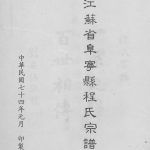 江蘇省阜寧縣程氏宗譜
中華民國七十四年元月 印製